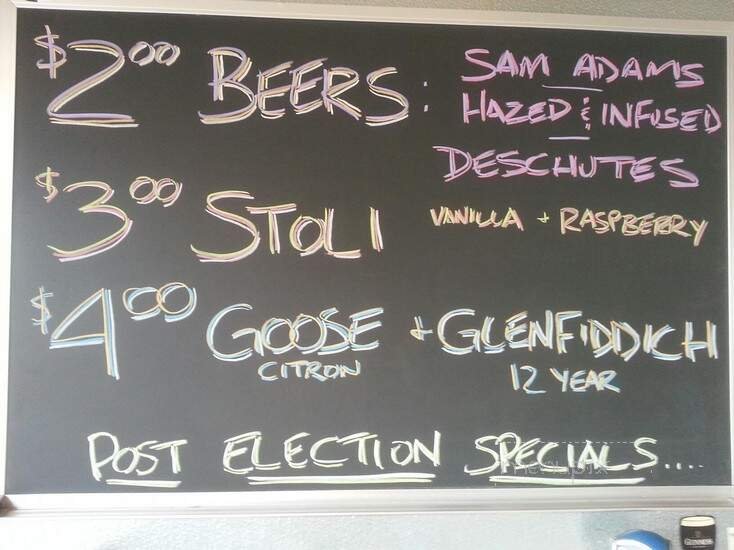 $2.00 BEERS: SAM ADAMS
HAZED & INFUSED
DESCHUTES
$3.00 STOLI VANILLA + RASPBERRY
$4.00 GOOSE + GLENFIDDICH
CITRON 12 YEAR
POST ELECTION SPECIALS....
GUINNESS